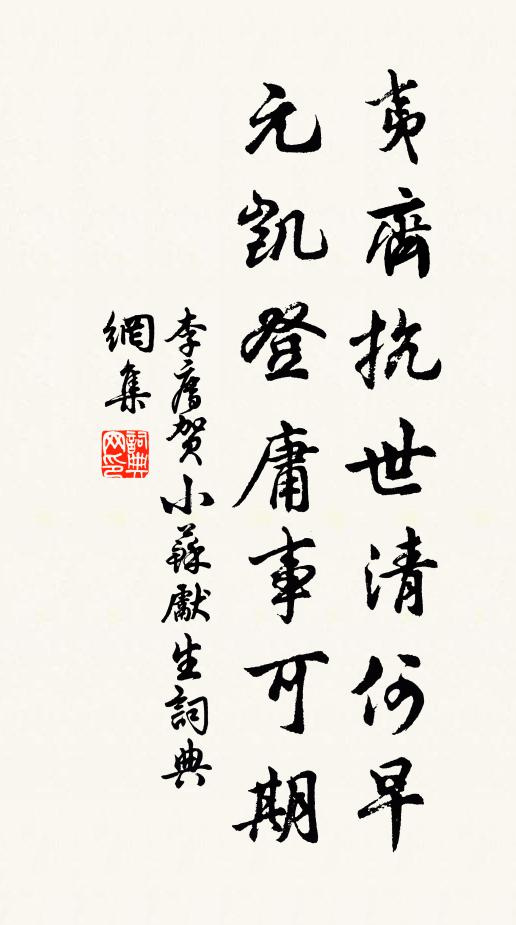 夷齊抗世清何早
元凱登庸事可期
李廌賀小蘇獻生詞典
網集
詞典网印